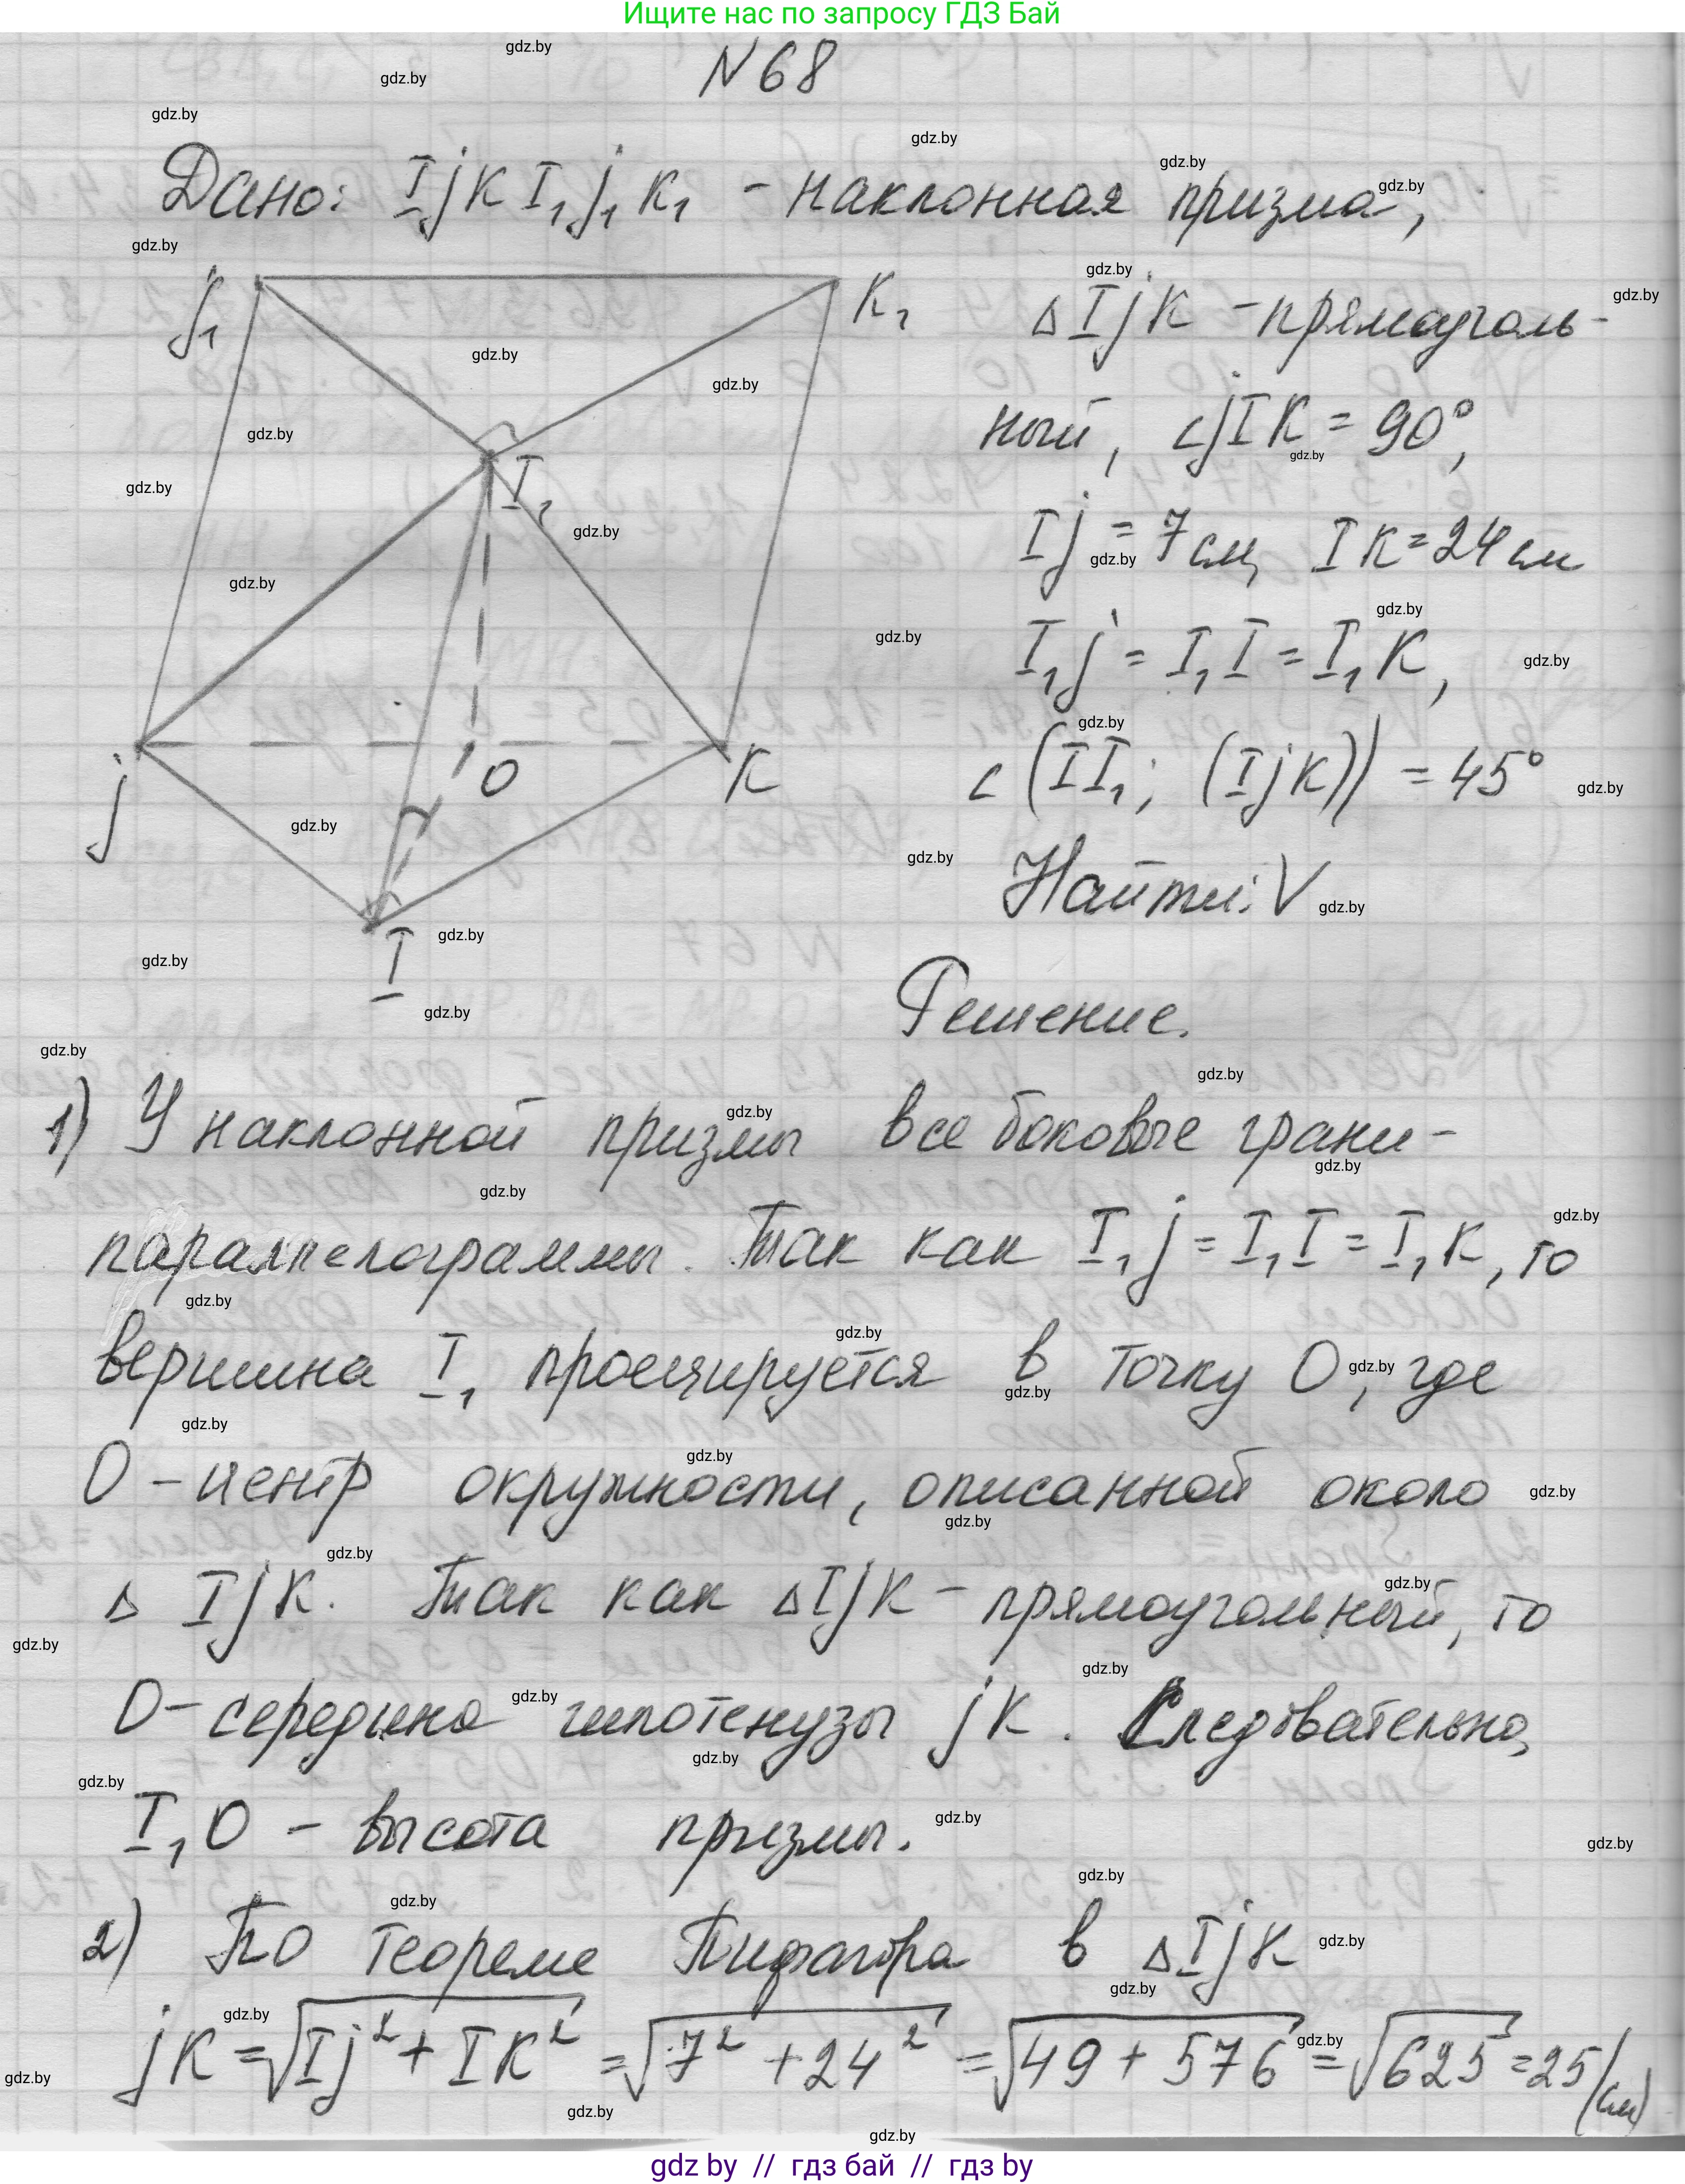 Ищите нас по запросу ГДЗ Бай
N 68
Дано: IjK I₁j₁K₁ - наклонная призма,
j₁
K₁
I₁
j
O
K
I
△IjK - прямоуголь-
ный, ∠jIK = 90°,
Ij = 7 см, IK = 24 см
I₁j = I₁I = I₁K,
∠(II₁; (IjK)) = 45°
Найти: V
Решение.
1) У наклонной призмы все боковые грани -
параллелограммы. Так как I₁j = I₁I = I₁K, то
вершина I₁ проецируется в точку O, где
O - центр окружности, описанной около
△ IjK. Так как △IjK - прямоугольный, то
O - середина гипотенузы jK. Следовательно,
I₁O - высота призмы.
2) По теореме Пифагора в △IjK
jK = √(Ij² + IK²) = √(7² + 24²) = √(49 + 576) = √625 = 25 (см)
gdz by // гдз бай // гдз by